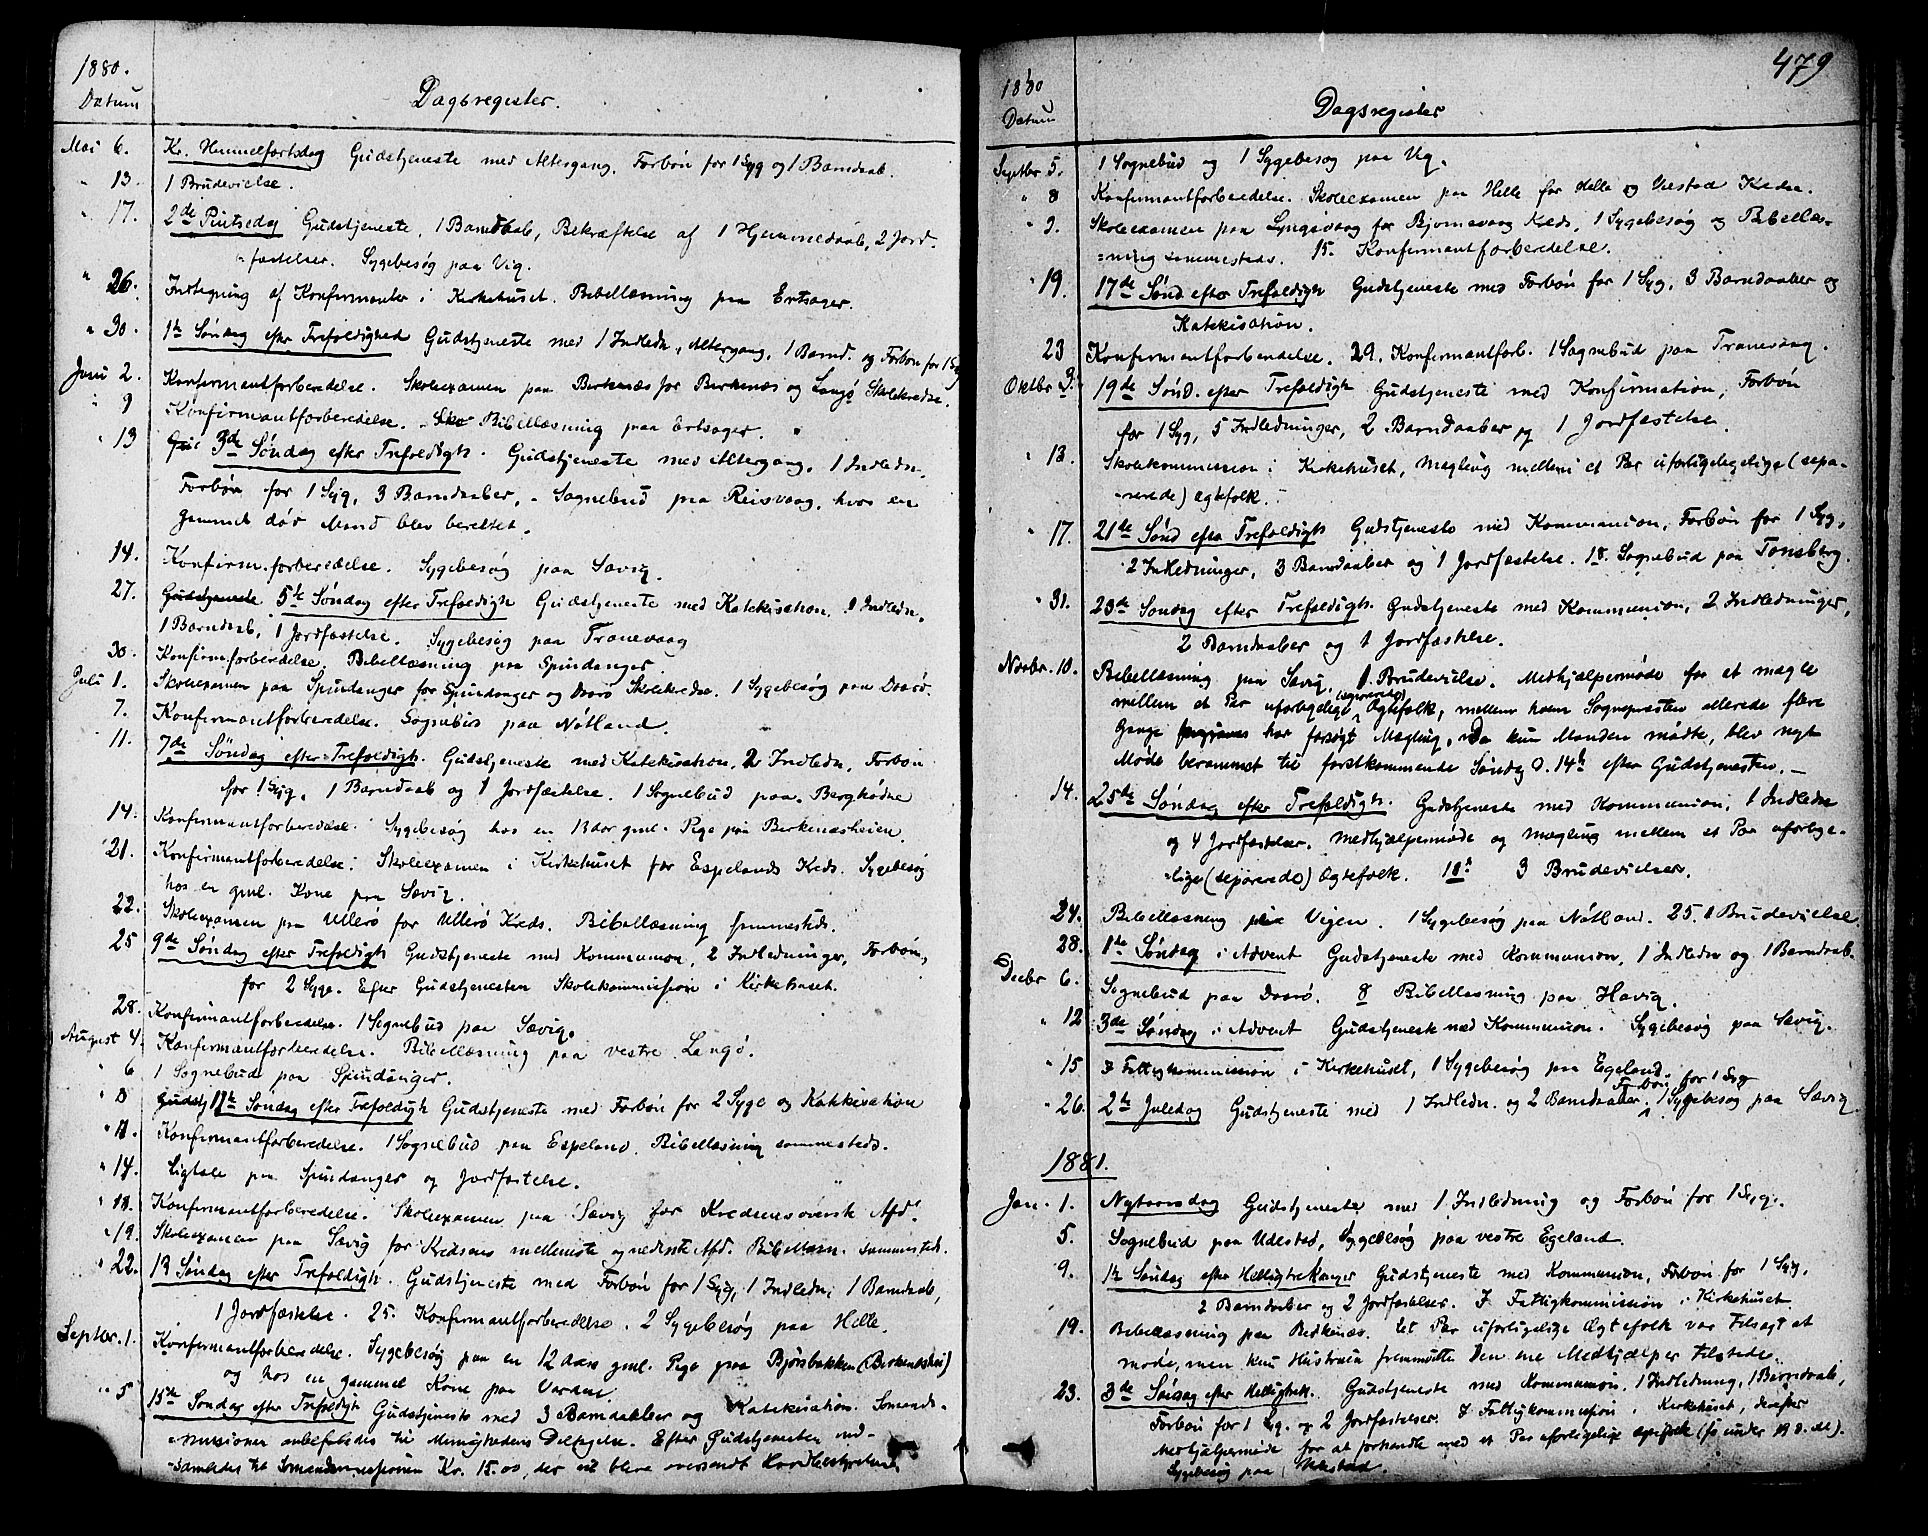 1880.
Datum
Dagsregister.
Mai 6. Kr. Himmelfartsdag Gudstjeneste med Altergang. Forbøn for 1 Syg og 1 Barndaab.
" 13. 1 Brudevielse.
" 17. 2de Pintsedag Gudstjeneste, 1 Barndaab, Bekræftelse af 1 Hjemmedaab, 2 Jord-
=fæstelser. Sygebesøg paa Vig.
" 26. Indtegning af Konfirmanter i Kirkehuset. Bibellæsning paa Ertsager.
" 30. 1te Søndag efter Trefoldighed Gudstjeneste med 1 Indledn., Altergang, 1 Barnd. og Forbøn for 1 Syg
Juni 2. Konfirmantforberedelse. Skoleexamen paa Birkenæs for Birkenæs og Langø Skolekredse.
" 9 Konfirmantforberedelse. Bibellæsning paa Ertsager.
" 13 3de Søndag efter Trefoldigh. Gudstjeneste med Altergang, 1 Indledn.
Forbøn for 1 Syg, 3 Barndaaber. Sognebud paa Reisvaag, hvor en
gammel døv Mand blev berettet.
14. Konfirm.forberedelse. Sygebesøg paa Sævig.
27. Gudstjeneste 5te Søndag efter Trefoldigh Gudstjeneste med Katekisation, 1 Indledn.
1 Barndaab, 1 Jordfæstelse. Sygebesøg paa Tranevaag
30. Konfirm.forberedelse. Bibellæsning paa Spindanger.
Juli 1. Skoleexamen paa Spindanger for Spindanger og Dorø Skolekredse. 1 Sygebesøg paa Dorø.
7. Konfirmantforberedelse. Sognebud paa Nøtland.
11. 7de Søndag efter Trefoldigh. Gudstjeneste med Katekisation, 2 Indledn, Forbøn
for 1 Syg, 1 Barndaab og 1 Jordfæstelse. 1 Sognebud paa
14. Konfirmantforberedelse. Sygebesøg hos en 13 aar gml. Pige paa Birkenæsheien.
21. Konfirmantforberedelse. Skoleexamen i Kirkehuset for Espelands Kreds. Sygebesøg
hos en gml. Kone paa Sævig.
22. Skoleexamen paa Ullerø for Ullerø Kreds. Bibellæsning sammesteds.
25 9de Søndag efter Trefoldigh Gudstjeneste med Kommunion, 2 Indledninger, Forbøn,
for 2 Syge. Efter Gudstjenesten Skolekommission i Kirkehuset.
28. Konfirmantforberedelse. 1 Sognebud paa Sævig.
August 4. Konfirmantforberedelse. Bibellæsning paa vestre Langø.
" 6 1 Sognebud paa Spindanger.
" 8 Gudstj 11te Søndag efter Trefoldigh Gudstjeneste med Forbøn for 2 Syge og Katekisation
" 11. Konfirmantforberedelse. 1 Sognebud paa Espeland. Bibellæsning sammesteds.
" 14. Ligtale paa Spindanger og Jordfæstelse.
" 18. Konfirmantforberedelse. Skoleexamen paa Sævig for Kredsens øverste Afd.
" 19. Skoleexamen paa Sævig for Kredsens mellemste og nederste Afd. Bibellæsn. sammesteds.
" 22. 13 Søndag efter Trefoldigh. Gudstjeneste med Forbøn for 1 Syg, 1 Indledn, 1 Barndaab,
1 Jordfæstelse. 25. Konfirmantforberedelse. 2 Sygebesøg paa Helle.
Septbr. 1. Konfirmantforberedelse. Sygebesøg paa en 12 Aars gml. Pige paa Bjørsbakken (Birkenæshei)
og hos en gammel Kone paa Varden
" 5 15te Søndag efter Trefoldigh Gudstjeneste med 3 Barndaaber og Katekisation. Sømands-
=missionen anbefaledes til Menighedens Deltagelse. Efter Gudstjenesten ind-
=samledes til Sømandsmissionen Kr. 15.00, der vil blive oversendt Hovedbestyrelsen
479
1880
Datum
Dagsregister
Septbr. 5. 1 Sognebud og 1 Sygebesøg paa Vig.
" 8 Konfirmantforberedelse. Skoleexamen paa Helle for Helle og Vrestad Kredse.
" 9. Skoleexamen paa Lyngsvaag for Bjørnevaag Kreds, 1 Sygebesøg og Bibellæs-
=ning sammesteds. 15. Konfirmantforberedelse.
" 19. 17de Sønd efter Trefoldigh Gudstjeneste med Forbøn for 1 Syg, 3 Barndaaber og
Katekisation.
23 Konfirmantforberedelse. 29. Konfirmantforb. 1 Sognebud paa Tranevaag.
Oktbr 3. 19de Sønd. efter Trefoldigh Gudstjeneste med Konfirmation, Forbøn
for 1 Syg, 5 Indledninger, 2 Barndaaber og 1 Jordfæstelse.
" 13. Skolekommission i Kirkehuset, Mægling mellem et Par uforligelige (sepa-
=rerede) Ægtefolk.
" 17. 21de Sønd efter Trefoldigh Gudstjeneste med Kommunion, Forbøn for 1 Syg,
2 Indledninger, 3 Barndaaber og 1 Jordfæstelse. 18. Sognebud paa Tonsberg.
" 31. 23de Søndag efter Trefoldigh. Gudstjeneste med Kommunion, 2 Indledninger,
2 Barndaaber og 1 Jordfæstelse.
Novbr. 10. Bibellæsning paa Sævig. 1 Brudevielse. Medhjælpermøde for at mægle
mellem et Par uforligelige (separerede) Ægtefolk, mellem hvem Sognepresten allerede flere
Gange har forsøgt Mægling. Da kun Manden mødte, blev nyt
Møde berammet til førstkommende Søndag d. 14de efter Gudstjenesten. —
14. 25de Søndag efter Trefoldigh. Gudstjeneste med Kommunion, 1 Indledn
og 4 Jordfæstelser. Medhjælpermøde og Mægling mellem et Par uforlige-
=lige (separerede) Ægtefolk. 3 Brudevielser.
24. Bibellæsning paa Vigen. 1 Sygebesøg paa Nøtland. 25. 1 Brudevielse
28. 1ste Søndag i Advent Gudstjeneste med Kommunion, 1 Indledn og 1 Barndaab.
Decbr 6. Sognebud paa Dorø. 8 Bibellæsning paa Havig.
" 12 3de Søndag i Advent Gudstjeneste med Kommunion. Sygebesøg paa Sævig.
" 15 Fattigkommission i Kirkehuset, 1 Sygebesøg paa Egeland.
" 26. 2den Juledag Gudstjeneste med 1 Indledn. og 2 Barndaaber, Forbøn for 1 Syg 1 Sygebesøg paa Sævig.
1881.
Jan. 1. Nytaarsdag Gudstjeneste med 1 Indledning og Forbøn for 1 Syg.
5. Sognebud paa Udestad, Sygebesøg paa vestre Egeland.
9. 1te Søndag efter Helligtrekonger Gudstjeneste med Kommunion, Forbøn for 1 Syg,
2 Barndaaber og 2 Jordfæstelser. Fattigkommission i Kirkehuset
19. Bibellæsning paa Birkenæs. Et Par uforligelige Ægtefolk var tilsagt at
møde, men kun Hustruen fremmødte. Den ene Medhjælper tilstede.
23. 3de Søndag efter Helligtrek. Gudstjeneste med Kommunion, 1 Indledning, 1 Barndaab,
Forbøn for 1 Syg. og 2 Jordfæstelser. Fattigkommission i Kirkehuset, derefter
Medhjælpermøde for at forhandle med et Par uforligelige Ægtefolk
Sygebesøg paa